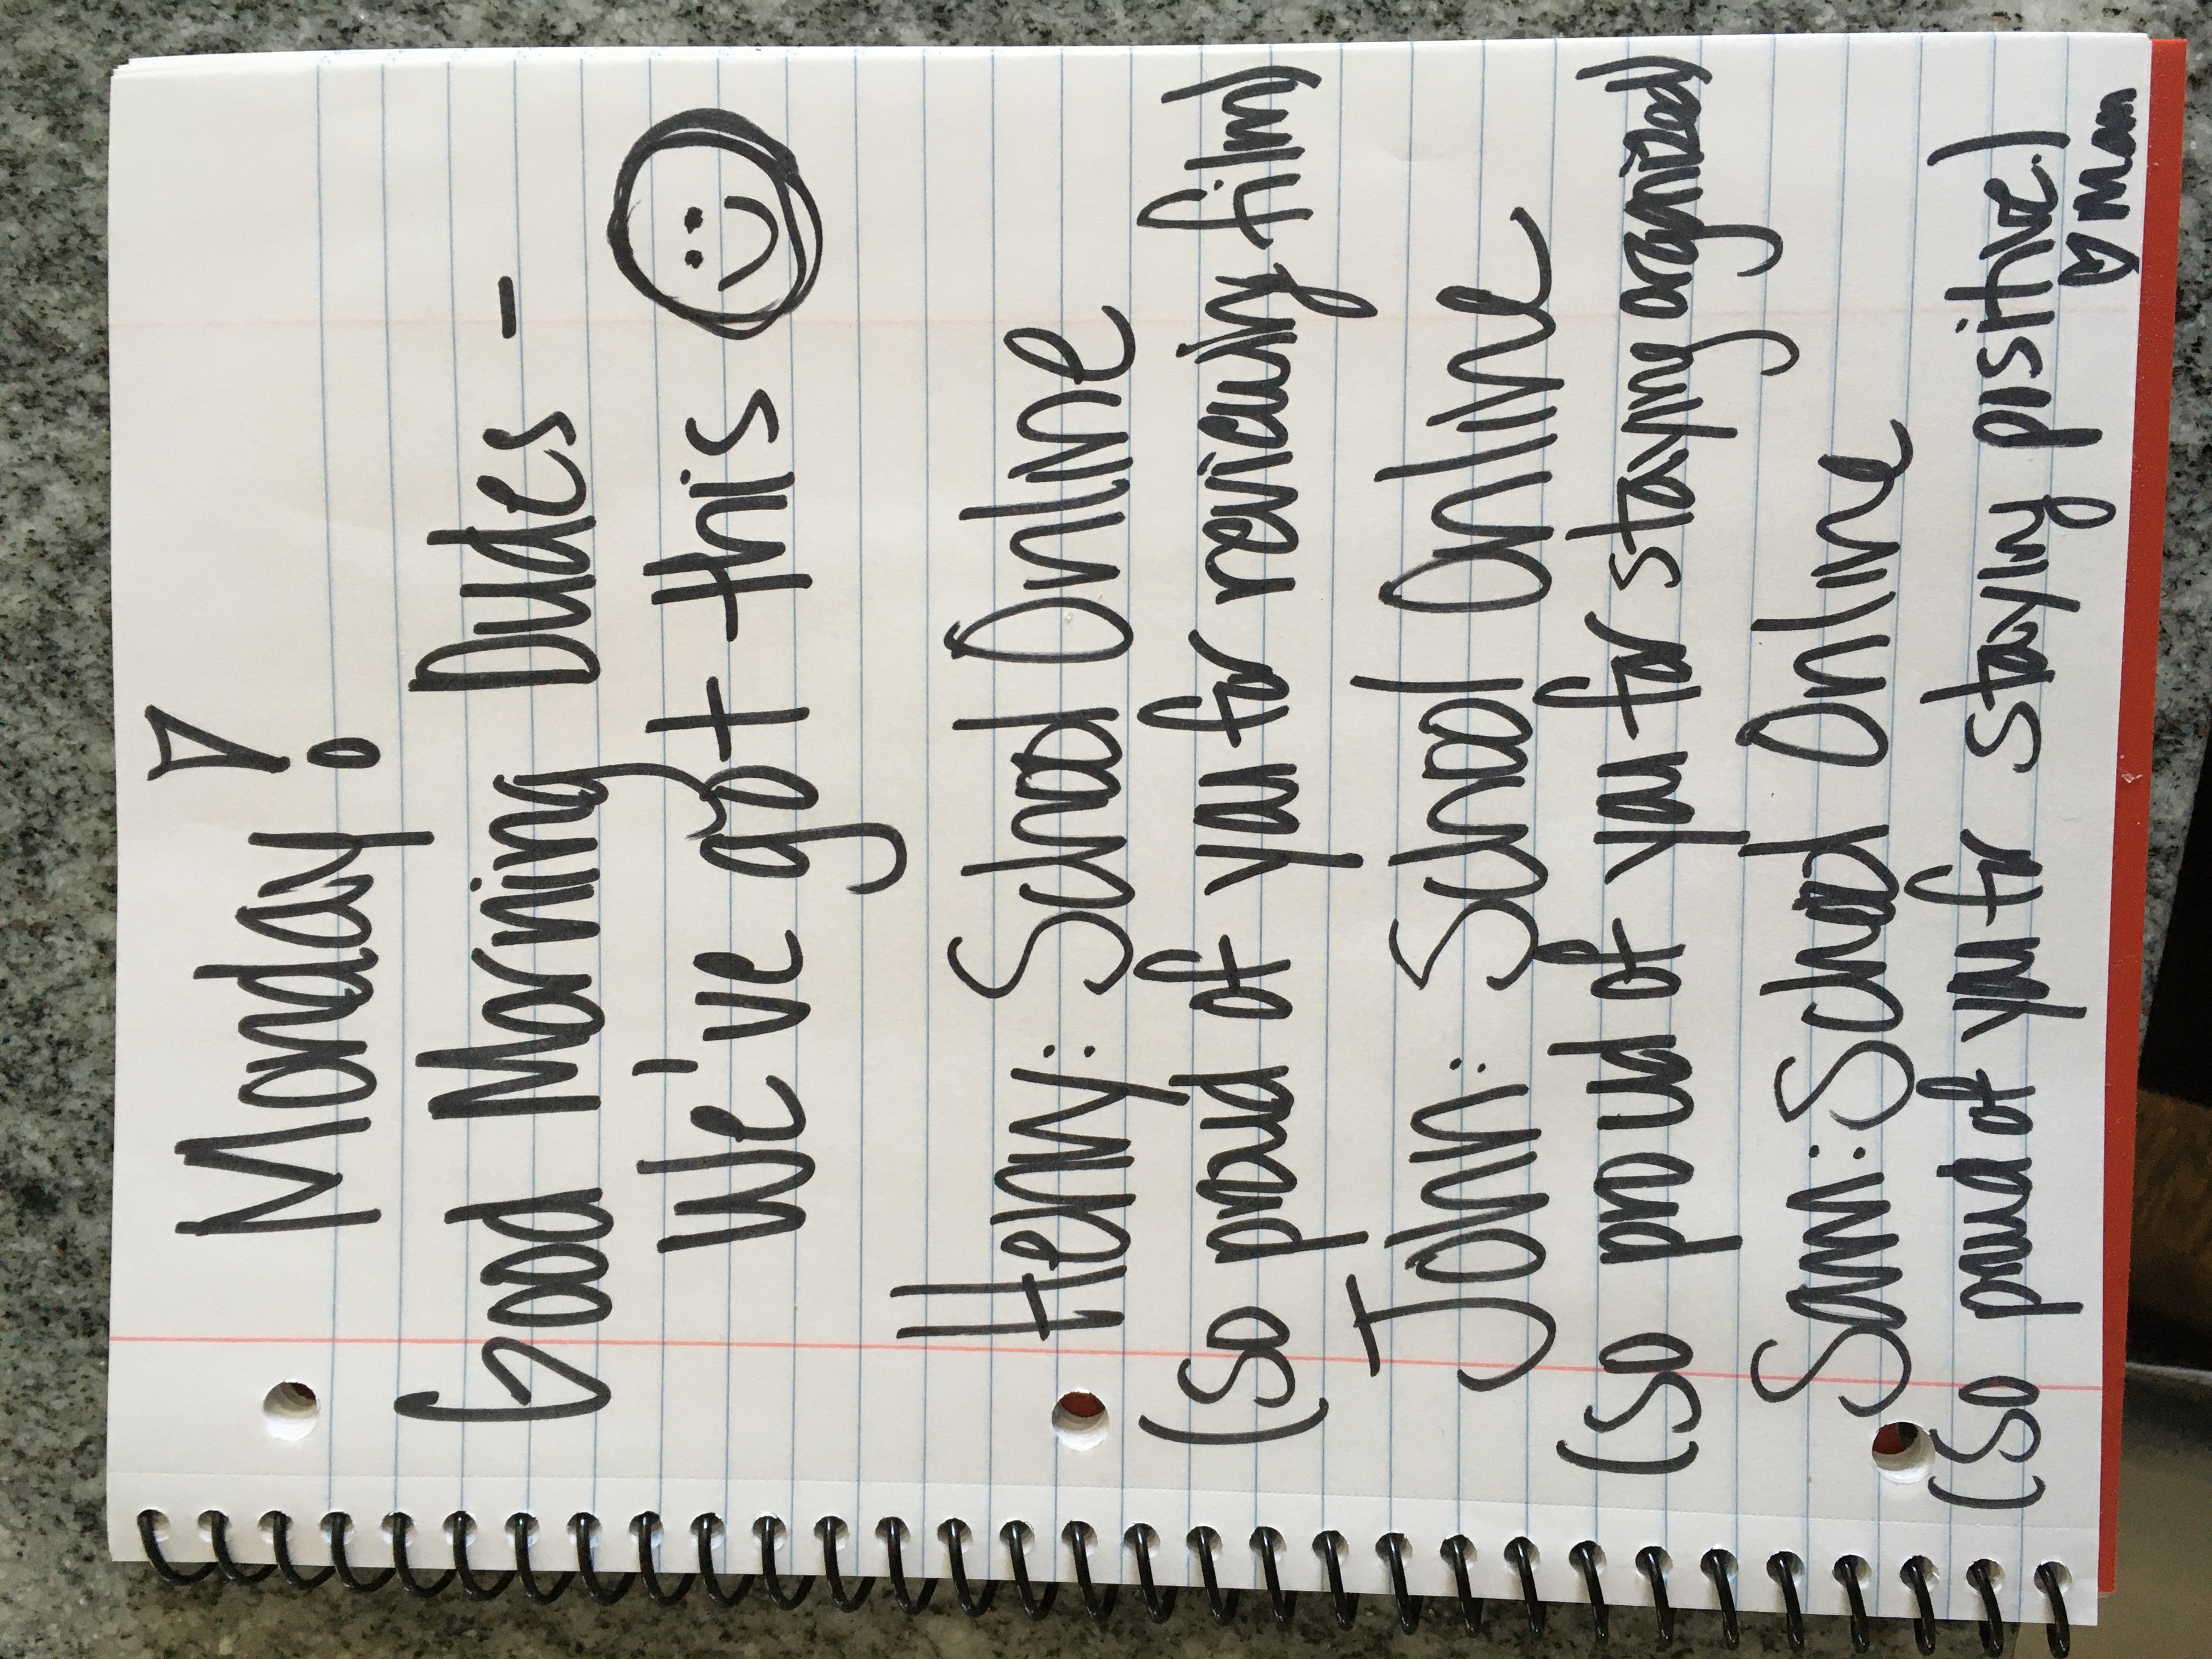 Monday!
Good Morning Dudes -
We've got this
Henry: School Online
(so proud of you for reviewing film)
John: School Online
(so proud of you for staying organized)
Sam: School Online
(so proud of you for staying positive.)
♡ mom